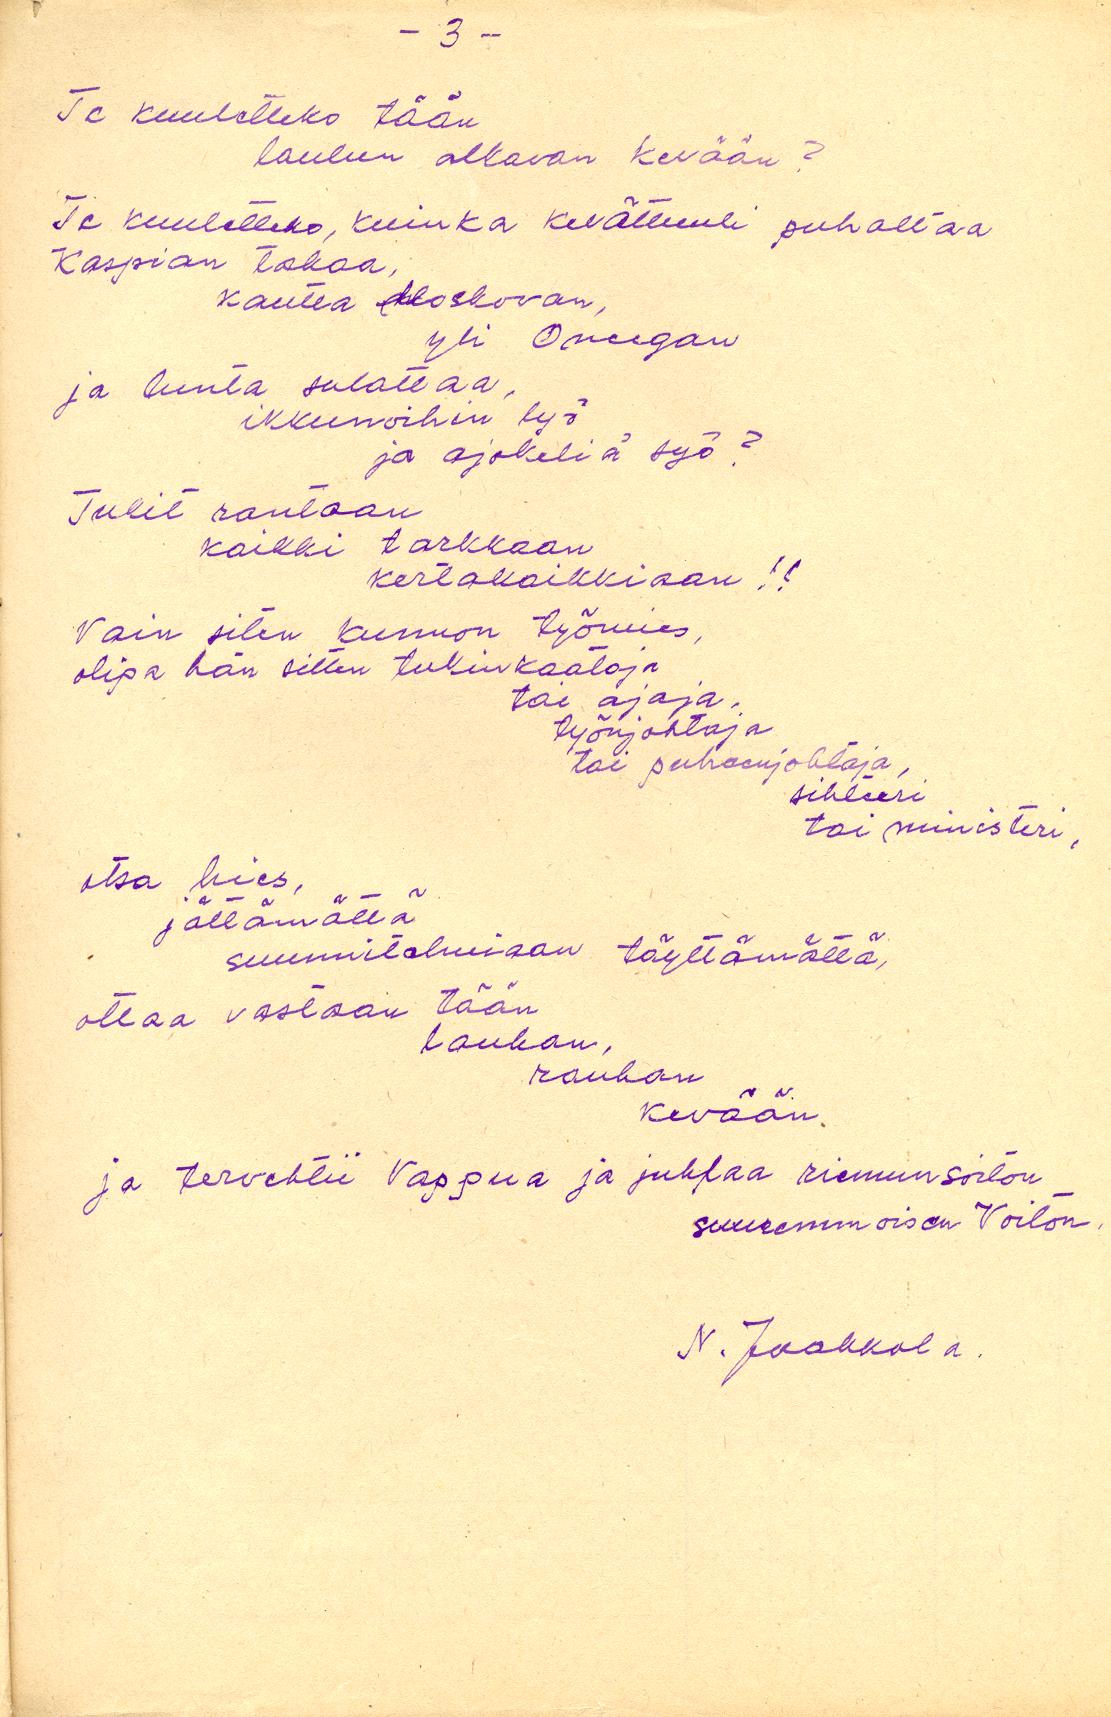 - 3 -
Te kuuletteko tään
laulun alkavan kevään?
Te kuuletteko, kuinka kevättuuli puhaltaa
Kaspian takaa,
kautta Moskovan,
yli Oneegan
ja lunta sulattaa,
ikkunoihin lyö
ja ajokeliä syö?
Tukit rantaan
kaikki tarkkaan
kertakaikkiaan!!
Vain siten kunnon työmies,
olipa hän sitten tukinkaataja
tai ajaja,
työnjohtaja
tai puheenjohtaja,
sihteeri
tai ministeri,
otsa hies,
jättämättä
suunnitelmiaan täyttämättä,
ottaa vastaan tään
lauhan,
rauhan
kevään.
ja tervehtii Vappua ja juhlaa riemunsoiton
suuremmoisen Voiton.
N. Jaakkola.